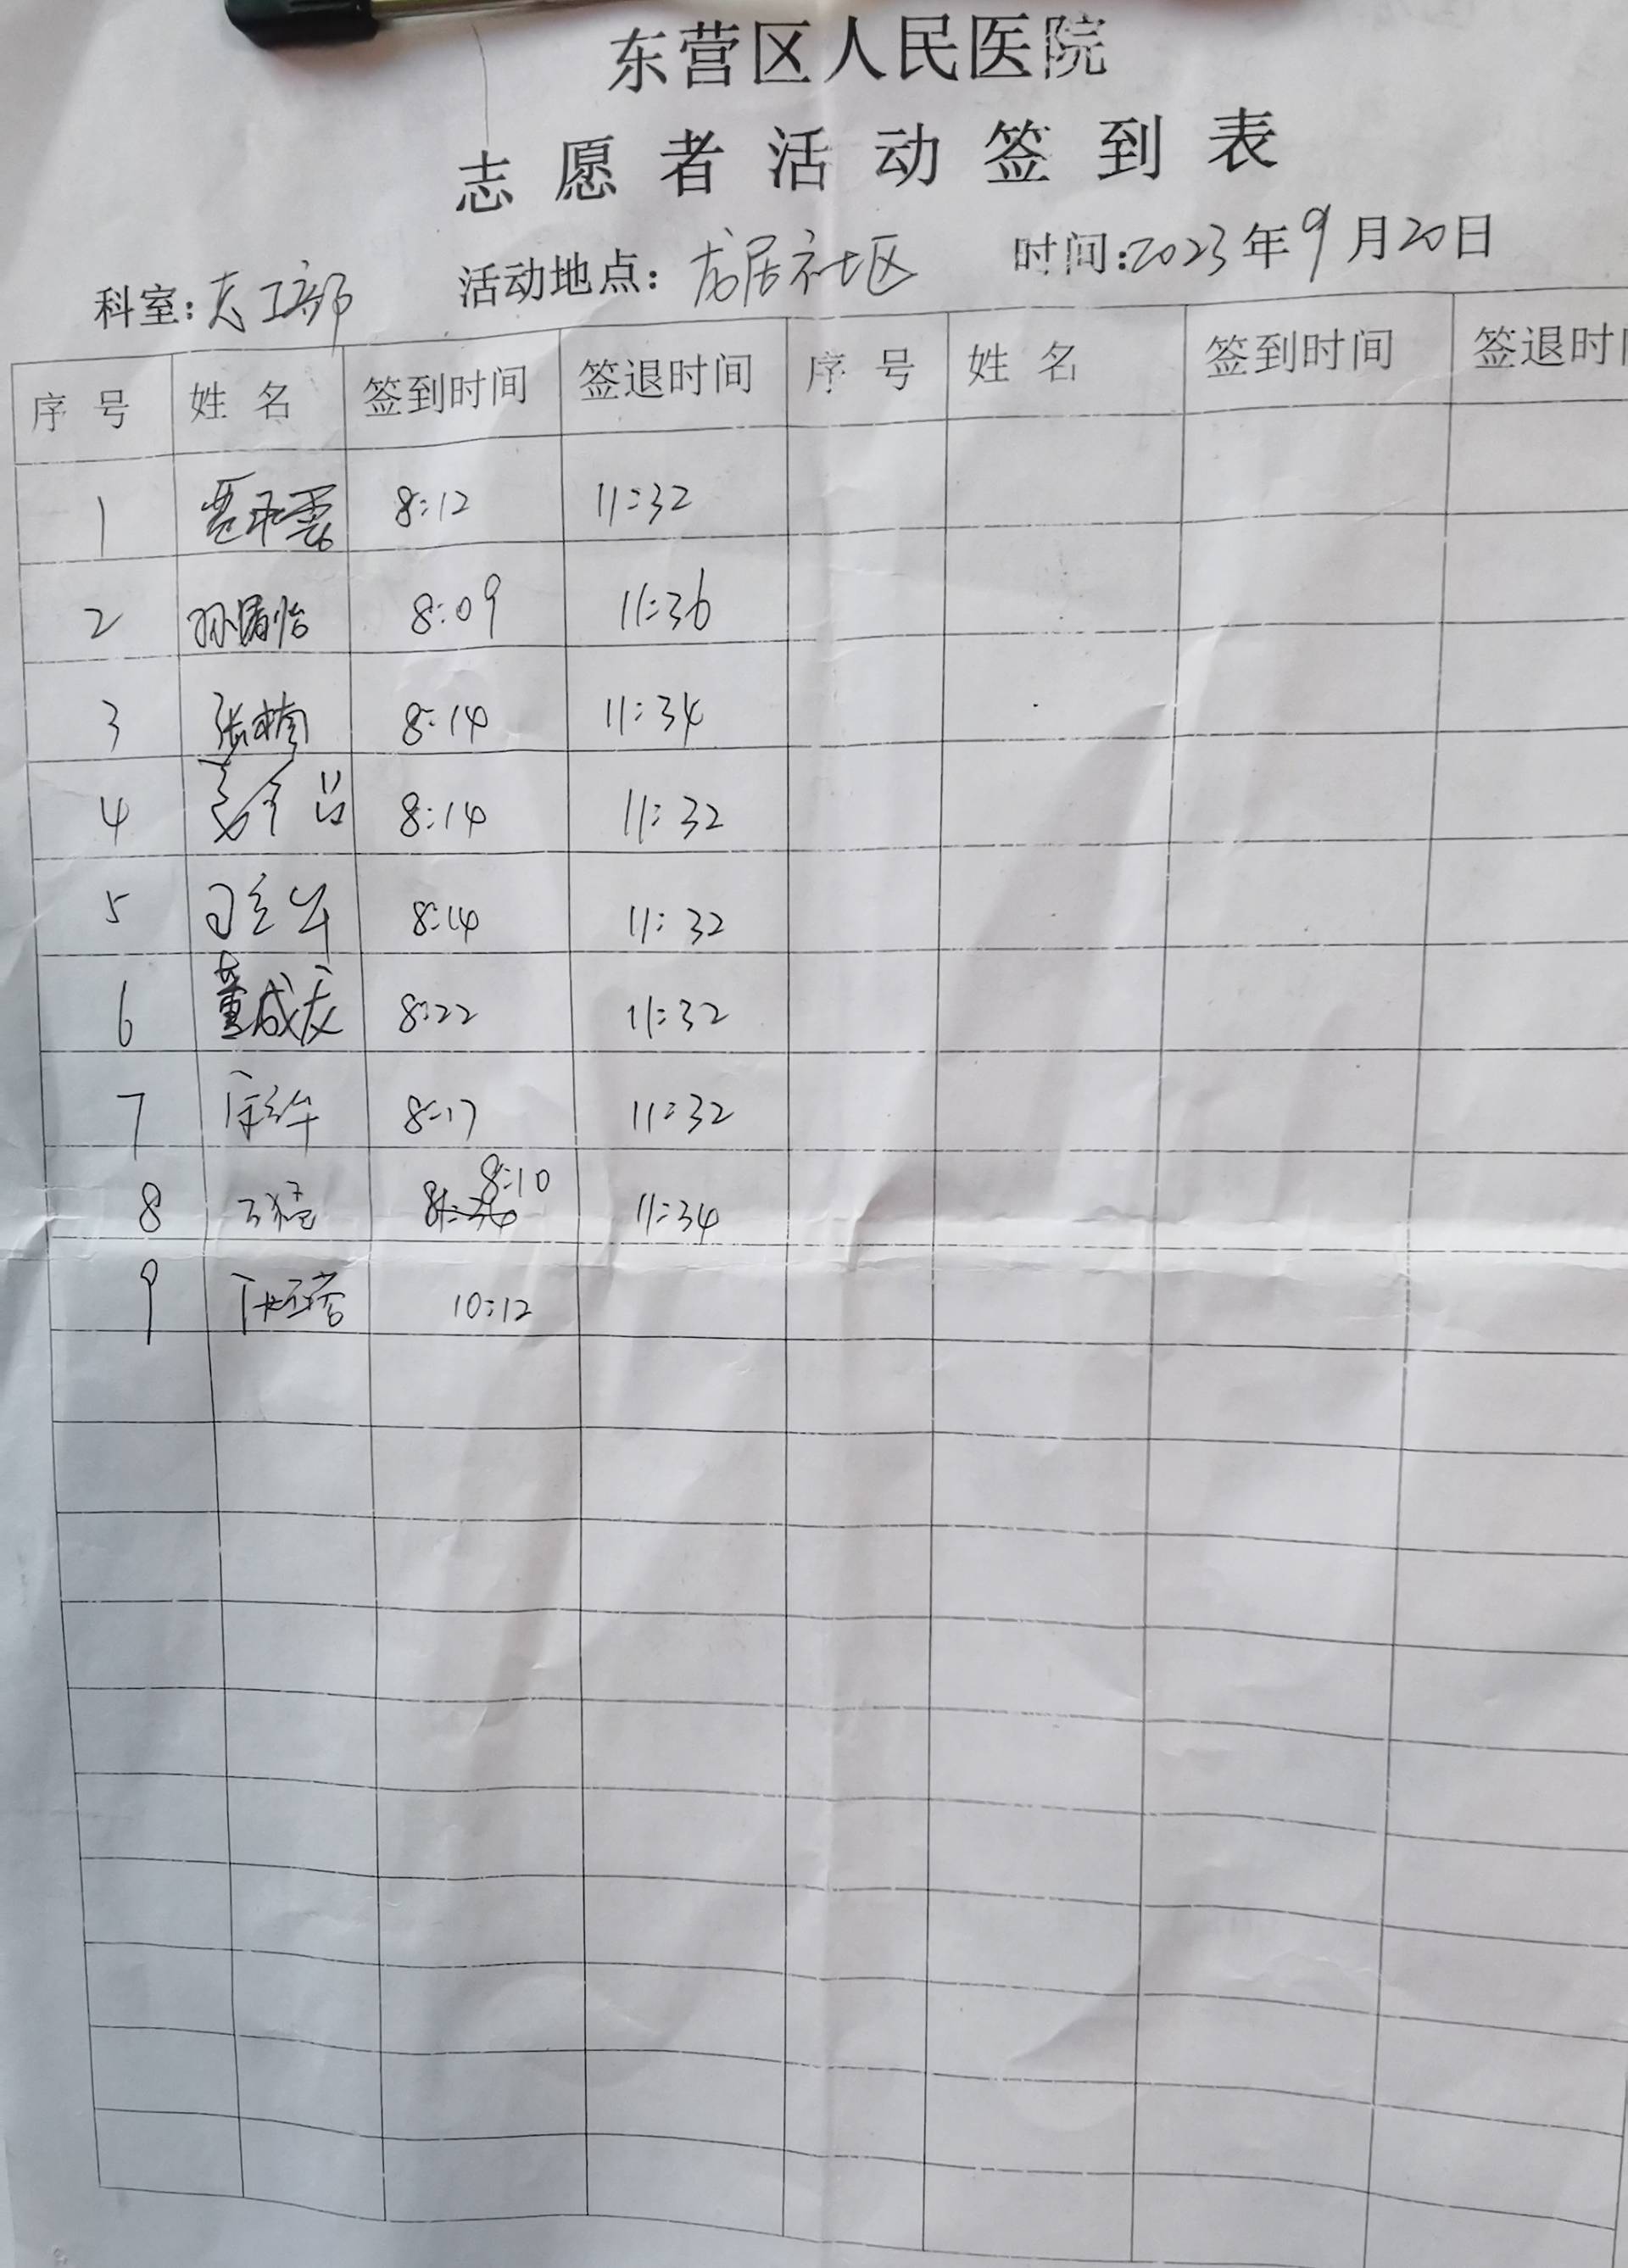 东营区人民医院
志愿者活动签到表
科室: 活动地点：龙居社区 时间:2023年9月20日
序号 姓名 签到时间 签退时间 序号 姓名 签到时间 签退时
1 8:12 11:32
2 8:09 11:36
3 张楠 8:14 11:34
4 8:14 11:32
5 8:14 11:32
6 董成友 8:22 11:32
7 8:17 11:32
8 8:10 11:34
9 10:12